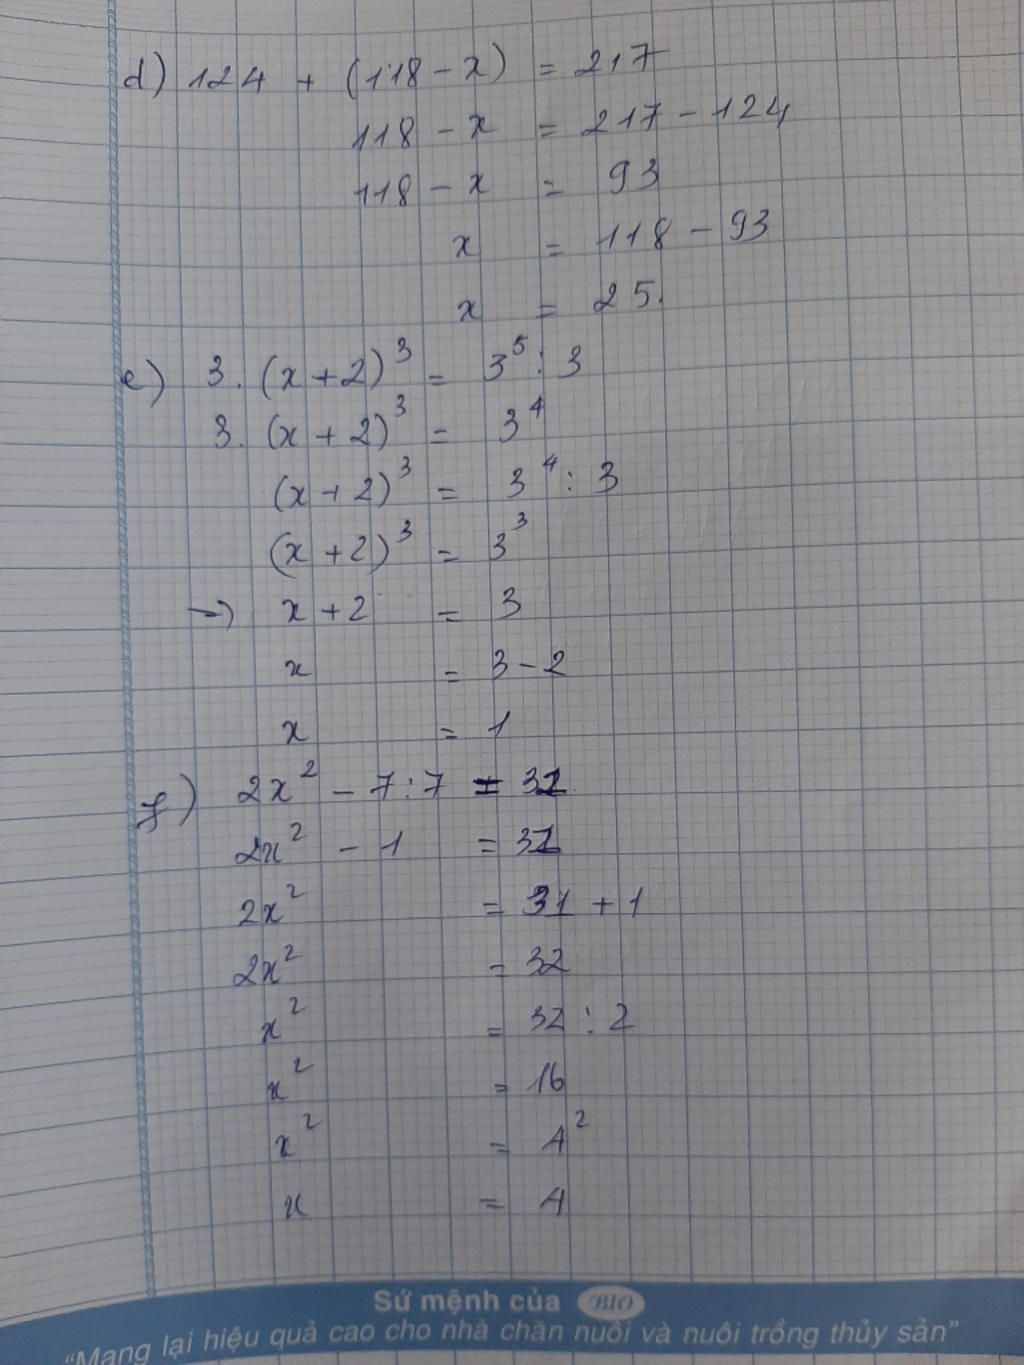 d) 124 + (118 - x) = 217
118 - x = 217 - 124
118 - x = 93
x = 118 - 93
x = 25.
e) 3. (x + 2)³ = 3⁵ : 3
3. (x + 2)³ = 3⁴
(x + 2)³ = 3⁴ : 3
(x + 2)³ = 3³
→) x + 2 = 3
x = 3 - 2
x = 1
f) 2x² - 7 : 7 = 31
2x² - 1 = 31
2x² = 31 + 1
2x² = 32
x² = 32 : 2
x² = 16
x² = 4²
x = 4
Sứ mệnh của BIO
"Mang lại hiệu quả cao cho nhà chăn nuôi và nuôi trồng thủy sản"